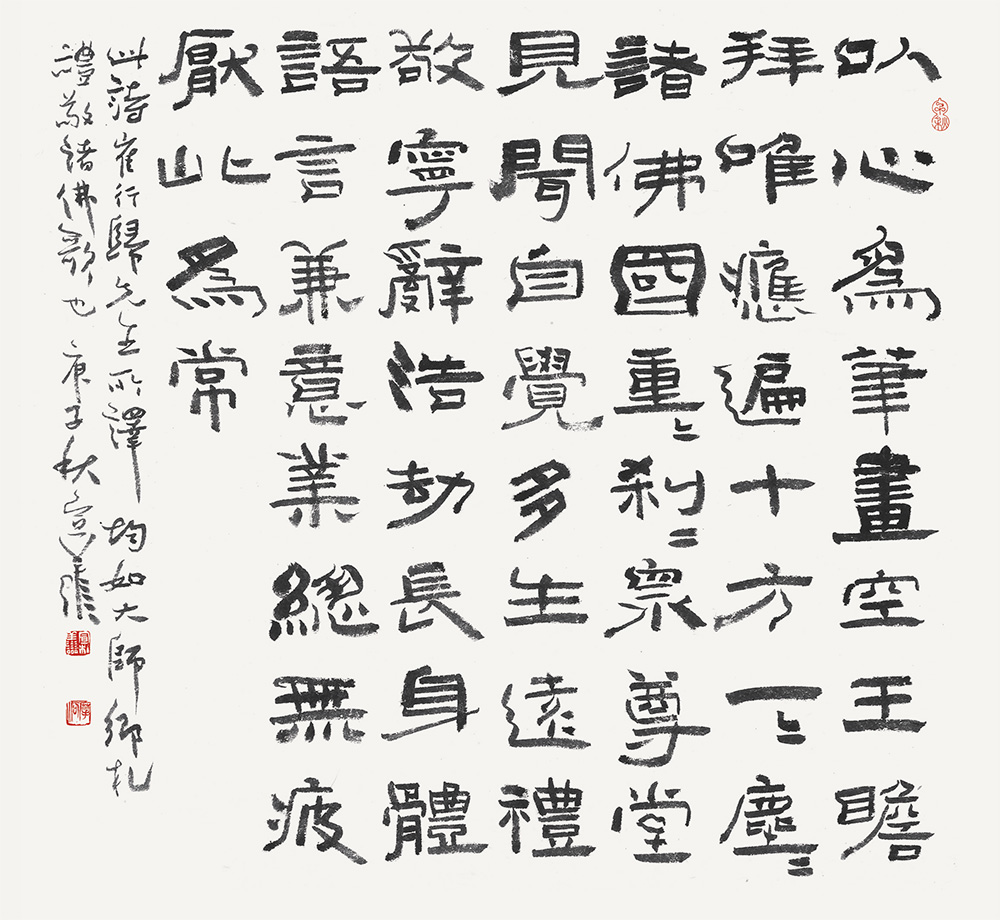 以心爲筆畫空王瞻
拜唯應遍十方一〻塵〻
諸佛國重〻刹〻衆尊堂
見聞自覺多生遠禮
敬寧辭浩劫長身體
語言兼意業總無疲
厭此爲常
此詩崔行歸先生所譯 均如大師鄉札
禮敬諸佛歌也 庚子秋